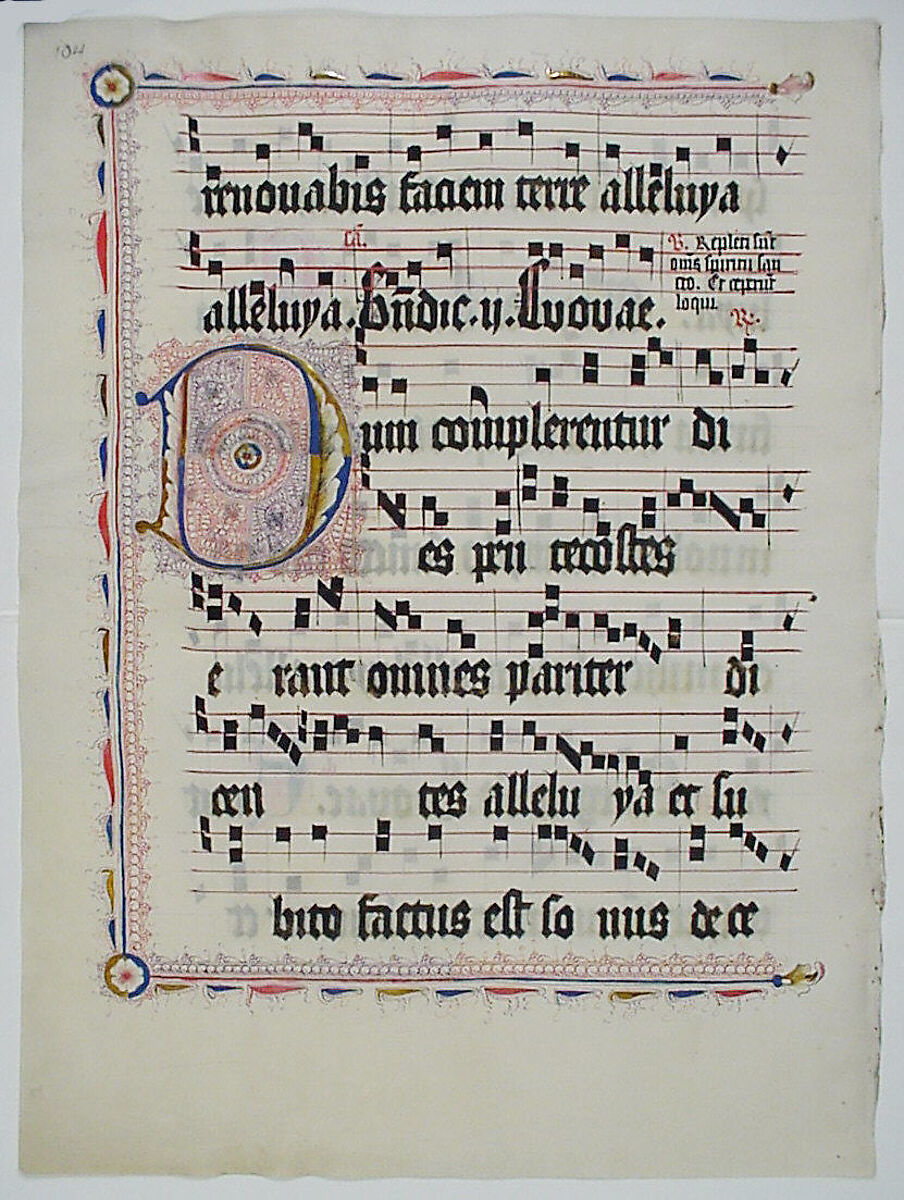 104
renouabis faciem terre alleluya
cā.
alleluya. Bn̄dic. ij. Euouae.
V. Repleti sūt
oms̄ spiritu san
cto. Et ceperūt
loqui.
R.
Dum com̄plerentur di
es pen tecostes
e rant omnes pariter di
cen tes allelu ya et su
bito factus est so nus de ce